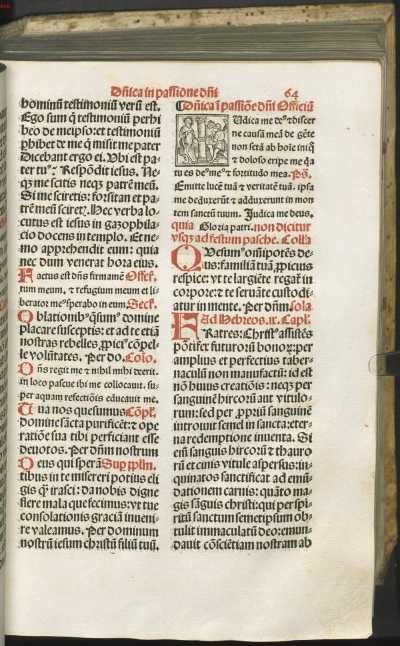 Dñica in passione dñi
64
hominũ testimoniũ verũ est.
Ego sum q̃ testimoniũ perhi
beo de meipso: et testimoniũ
ꝑhibet de me q̃ misit me pater
Dicebant ergo ei. Vbi est pa-
ter tuꝰ? Respõdit iesus. Ne-
qꝫ me scitis neqꝫ patrẽ meũ.
Si me sciretis: forsitan et pa-
trẽ meũ sciretꝭ. Hec verba lo-
cutus est iesus in gazophila-
cio docens in templo. Et ne-
mo apprehendit eum: quia
nec dum venerat hora eius.
Factus est dñs firmamẽ Offert.
tum meum. ⁊ refugium meum et li-
berator meꝰ ⁊ sperabo in eum. Secͣ.
Oblationibꝰ q̃sumꝰ domine
placare susceptis: et ad te etiã
nostras rebelles ꝓpiciꝰ cõpel-
le volũtates. Per do. Cõio.
Dñs regit me ⁊ nihil mihi deerit.
in loco pascue ibi me collocauit. su-
per aquam refectiõis educauit me.
Tua nos quesumus Cõpl.
domine sãcta purificẽt: ⁊ ope
ratiõe sua tibi perficiant esse
deuotos. Per dñm nostrum
Deus qui sperã Sup pplm.
tibus in te misereri potius eli
gis q̃ irasci: da nobis digne
flere mala que fecimus: vt tue
consolationis graciã inueni-
re valeamus. Per dominum
nostrũ iesum christũ filiũ tuũ.
Dñica ĩ passiõe dñi Officiũ
Iudica me deꝰ ⁊ discer
ne causã meã de gẽte
non sctã ab hoĩe iniq̃
⁊ doloso eripe me q̃a
tu es deꝰ meꝰ ⁊ fortitudo mea. Ps̃.
Emitte lucẽ tuã ⁊ veritatẽ tuã. ipsa
me deduxerũt ⁊ adduxerunt in mon
tem sanctũ tuum. Judica me deus.
quia Gloria patri. non dicitur
vsqꝫ ad festum pasche. Collͣa
Quesumꝰ omĩpotẽs de-
us: familiã tuã ꝓpicius
respice: vt te largiẽte regať in
corpore: ⁊ te seruãte custodi-
atur in mente. Per dñm. sola
Ad Hebreos. ix. Capl.
FRatres: Christꝰ assistẽs
põtifex futurorũ bonoꝝ: per
amplius et perfectius taber-
naculũ non manufactũ: id est
nõ huius creatiõis: neqꝫ per
sanguinẽ hircorũ aut vitulo-
rum: sed per ꝓpriũ sanguinẽ
introiuit semel in sancta: eter-
na redemptione inuenta. Si
eñ sanguis hircorũ ⁊ thauro
rũ et cinis vitule aspersus: in-
quinatos sanctificat ad emũ-
dationem carnis: quãto ma-
gis sãguis christi: qui per spi-
ritũ sanctum semetipsum ob-
tulit immaculatũ deo: emun-
dauit cõsciẽtiam nostram ab